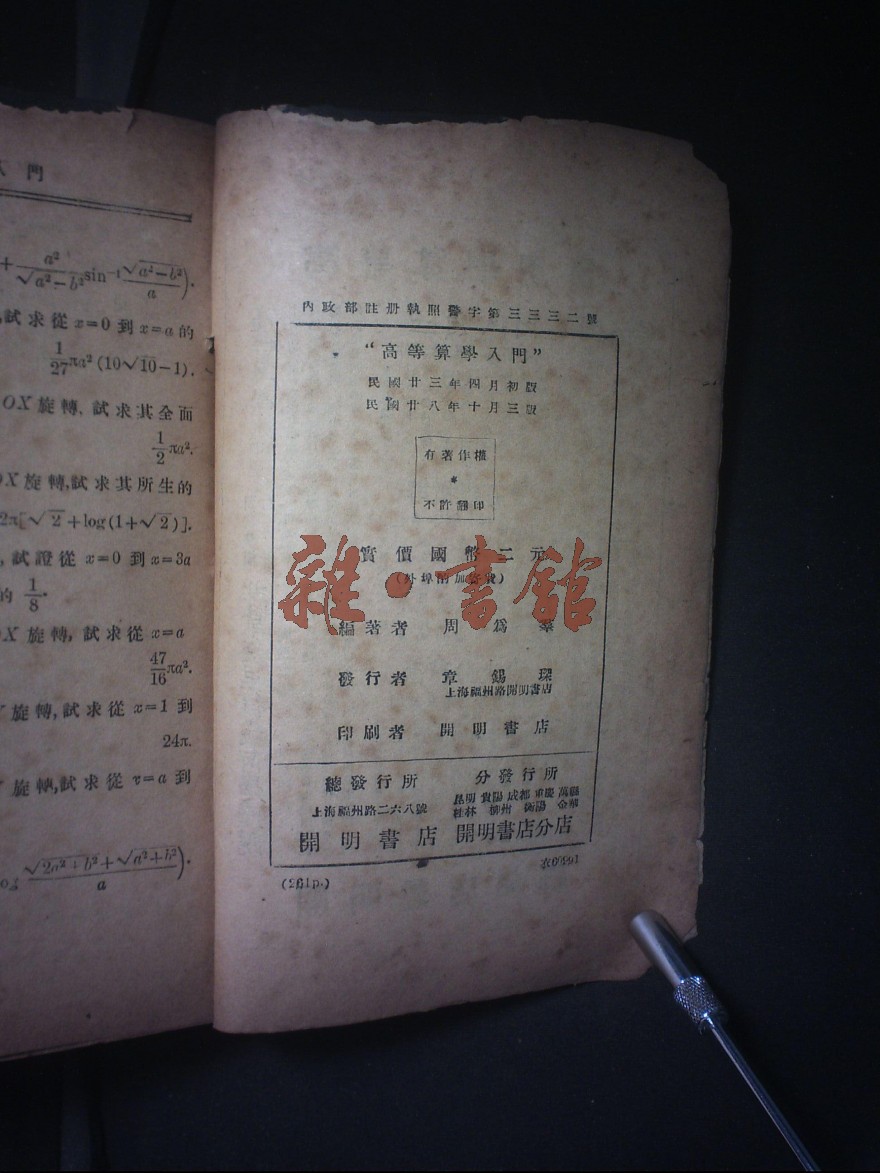 入門
+ a²/√a²−b² sin⁻¹ √a²−b²/a).
試求從x=0到x=a的
1/27 πa²(10√10−1).
OX旋轉, 試求其全面
1/2 πa².
OX旋轉,試求其所生的
2π[√2+log(1+√2)].
, 試證從x=0到x=3a
的 1/8.
OX旋轉, 試求從x=a
47/16 πa².
旋轉,試求從x=1到
24π.
旋轉,試求從x=a到
√2a²+b²+√a²+b²/a).
內政部註册執照警字第三三三二號
“高等算學入門”
民國廿三年四月初版
民國廿八年十月三版
有著作權
*
不許翻印
實價國幣二元
(外埠酌加寄費)
雜·書館
編著者 周爲羣
發行者 章錫琛
上海福州路開明書店
印刷者 開明書店
總發行所 分發行所
上海福州路二六八號 昆明 貴陽 成都 重慶 萬縣
桂林 柳州 衡陽 金華
開明書店 開明書店分店